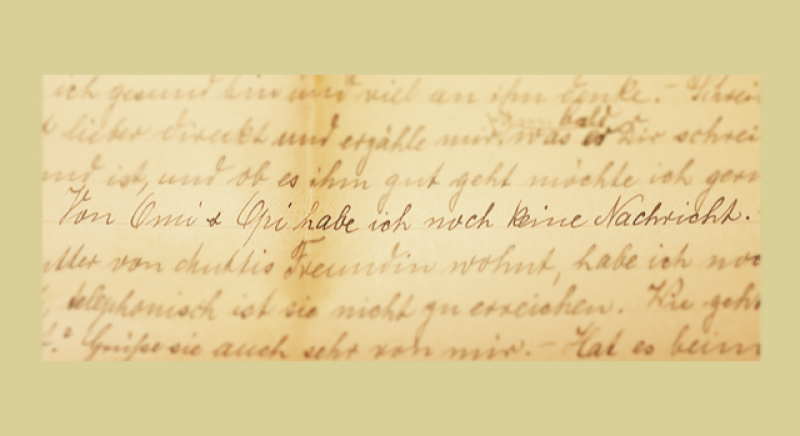 ich gesund bin und viel an ihn denke. – Schrei
lieber direkt und erzähle mir, was er Dir schrei
dann bald
und ist, und ob es ihm gut geht möchte ich gern
Von Omi & Opi habe ich noch keine Nachricht.
utter von Muttis Freundin wohnt, habe ich noc
telephonisch ist sie nicht zu erreichen. Wie geht
t.? Grüße sie auch sehr von mir. – Hat es beim